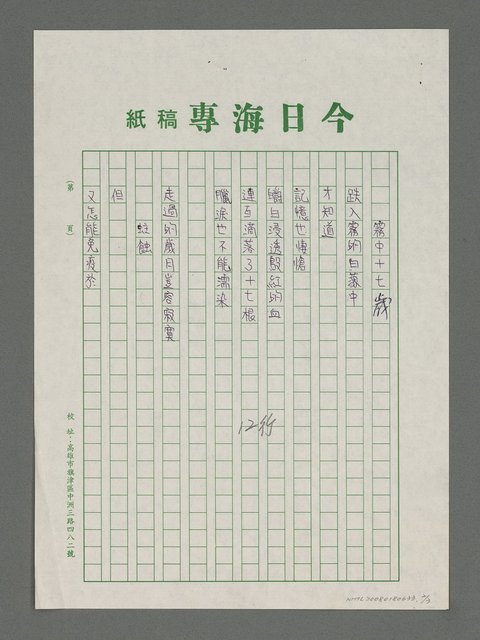 今日海專稿紙
霧中十七歲
跌入霧的白幕中
才知道
記憶也悽愴
皚白浸透殷紅的血
連亙滴落了十七根
臘淚也不能濡染
走過的歲月豈容寂寞
蛀蝕
但
又怎能免疫於
12行
(第 頁)
校 址：高雄市旗津區中洲三路四八二號